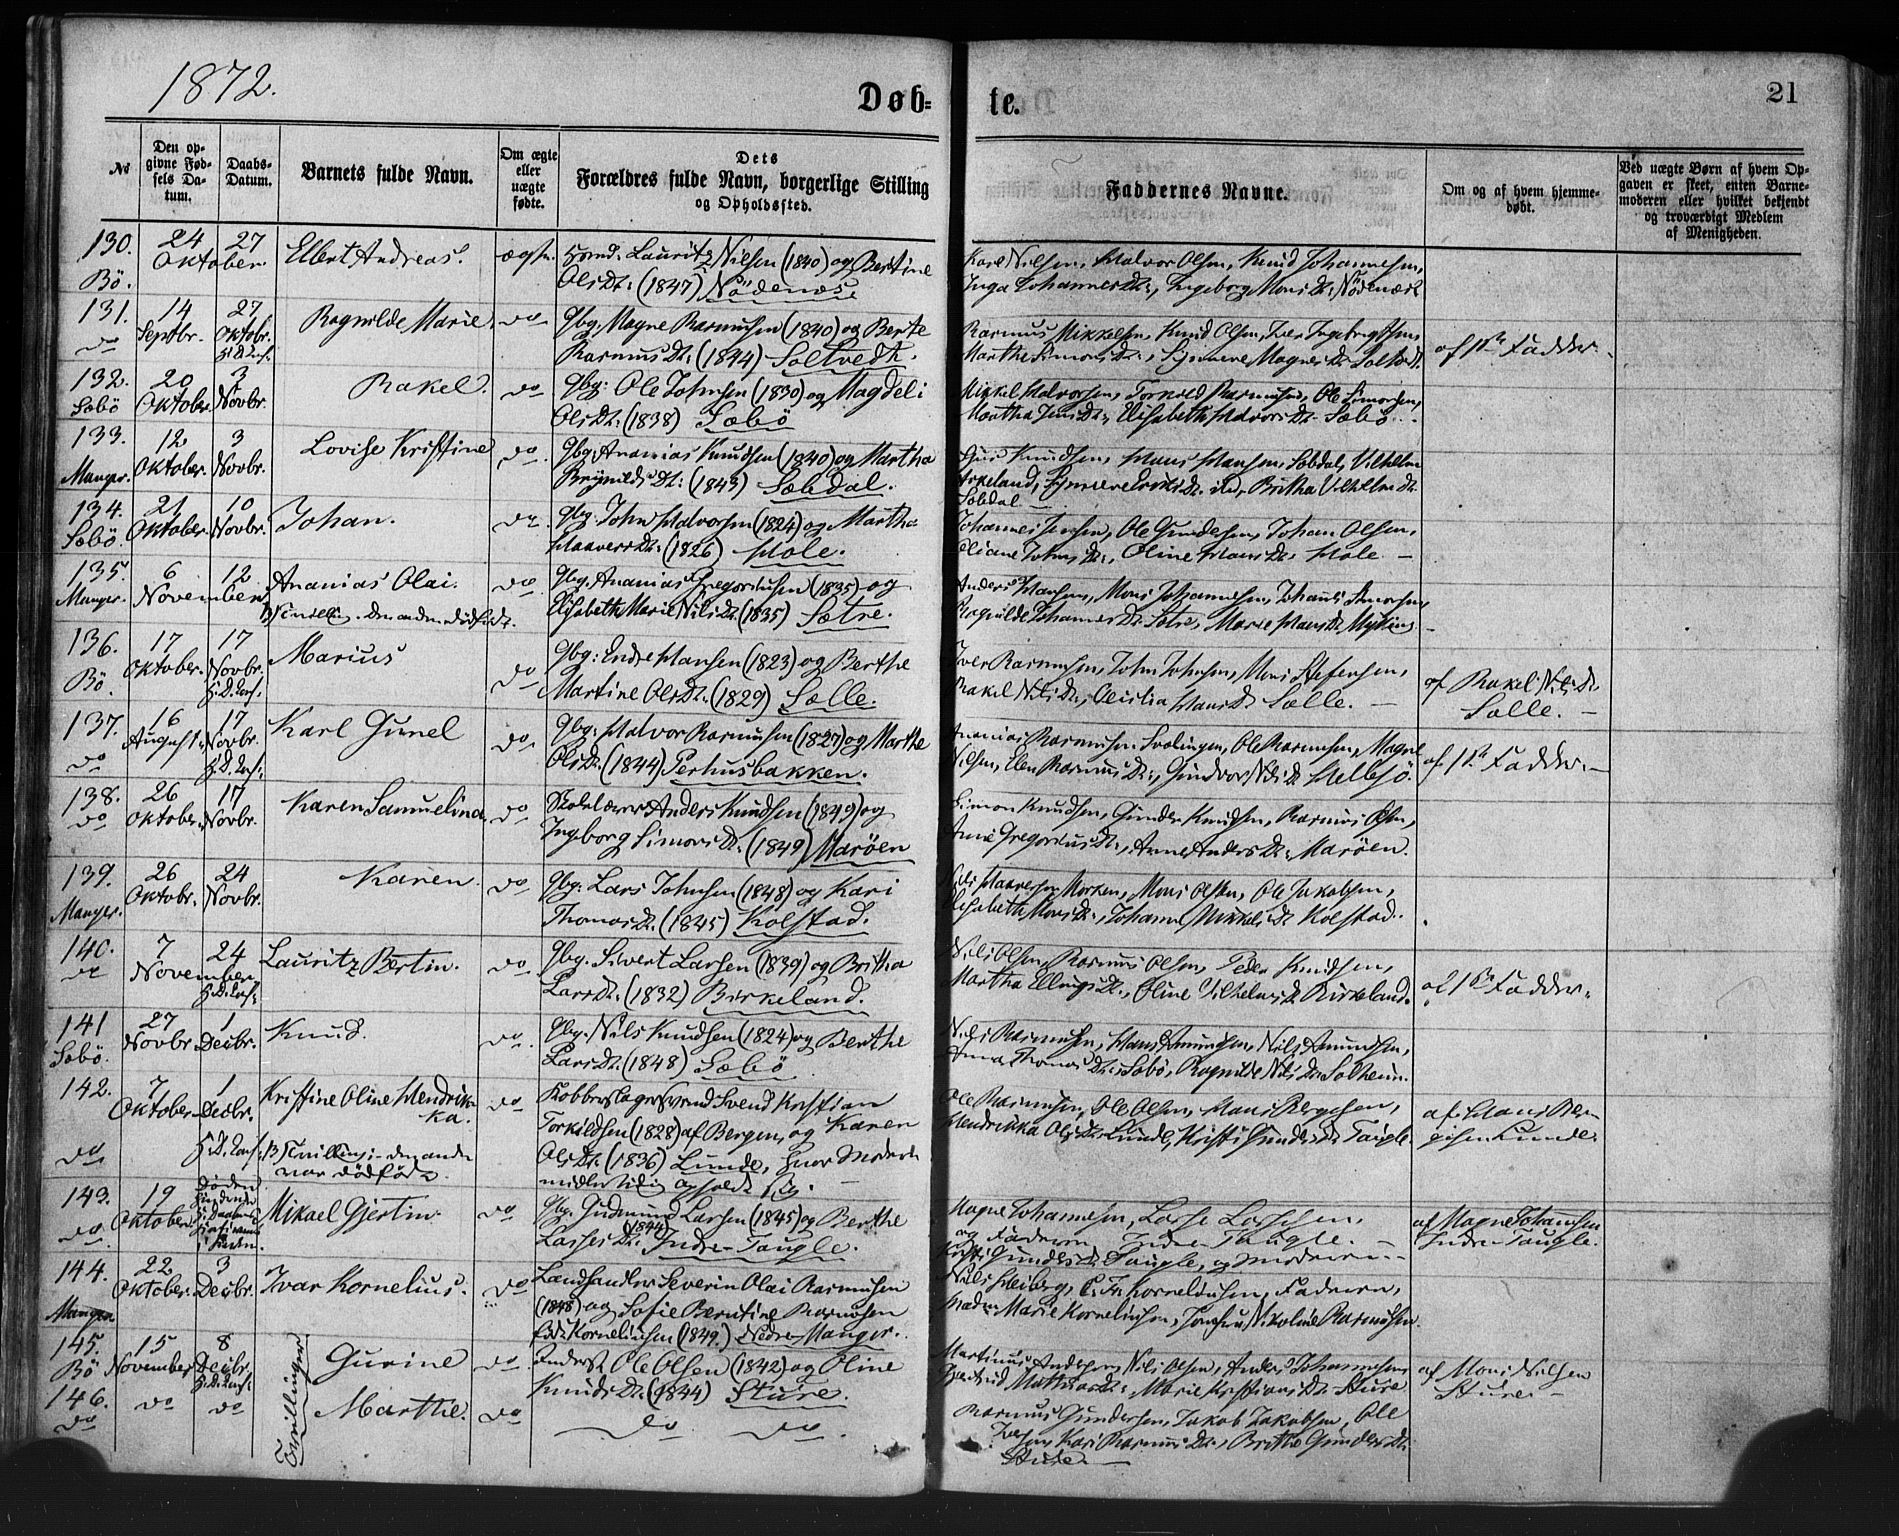 1872.
Døb-
te.
21
No
Den op-
givne Fød-
sels Da-
tum.
Daabs-
Datum.
Barnets fulde Navn.
Om ægte
eller
uægte
fødte.
Dets
Forældres fulde Navn, borgerlige Stilling
og Opholdssted.
Faddernes Navne.
Om og af hvem hjemme-
døbt.
Ved uægte Børn af hvem Op-
gaven er skeet, enten Barne-
moderen eller hvilket bekjendt
og troværdigt Medlem
af Menigheden.
130.
Bö.
24 27
Oktober
Elbert Andreas.
ægte.
Lauritz Nilsen (1840) og Bertine
Olsdt: (1847) Nödenæs
Karl Nilsen, Halvor Olsen, Knud Johannesen,
Inga Johannesdt:, Ingeborg Monsdt: Nödenæs
131.
do
14
Septbr.
27
Oktobr.
H.D.
Ragnilde Marie
do
Gbg: Magne Rasmusen (1840) og Berte
Rasmusdt: (1844) Soltvedt.
Rasmus Mikkelsen, Knud Olsen, Iver
Marthe Simonsdt:, Synneve Magnesdt: Soltvedt.
af 1ste Fadder.
132.
Sæbö
20
Oktober
3
Novbr.
Rakel.
do
Gbg: Ole Johnsen (1830) og Magdeli
Olsdt: (1838) Sæbö
Mikkel Halvorsen, Torkild Rasmusen, Ole Simonsen,
Martha Jensdt:, Elisabeth Halvorsdt: Sæbö.
133.
Manger.
12
Oktober.
3
Novbr.
Lovise Kristine
do.
Gbg: Ananias Knudsen (1840) og Martha
Brynildsdt: (1843) Sæbdal.
Knudsen, Hans Hansen, Sæbdal, Vilhelm
Birkeland, Synneve, Britha Vilhelmsdt:
Sæbdal
134.
Sæbö.
21
Oktober.
10
Novbr.
Johan.
do.
Gbg: John Halvorsen (1824) og Martha
Haaversdt: (1826) Hole.
Johannes Jensen, Ole Gundersen, Johan Olsen,
Johnsdt:, Oline Hansdt: Hole.
135.
Manger.
6 12
November
Ananias Olai.
NB Tvilling. Den anden dödfödt.
do
Gbg: Ananias Gregoriusen (1835) og
Elisabeth Marie Nilsdt: (1835) Sætre.
Anders Hansen, Mons Johannesen, Johans Simonsen,
Ragnilde Johannesdt: Sætre, Marie Hansdt: Myking
136.
Bö.
17
Oktober.
17
Novbr.
H.D.
Marius
do
Gbg: Endre Hansen (1823) og Berthe
Martine Olsdt: (1829) Sælle.
Iver Rasmusen, John Johnsen, Mons Stefensen,
Rakel Nilsdt:, Cecilia Hansdt: Sælle.
af Rakel Nilsdt:
Sælle.
137.
do
16
August.
17
Novbr.
H.D.
Karl Gunel
do.
Gbg: Halvor Rasmusen (1827) og Marthe
Olsdt: (1844) Perhusbakken.
Ananias Rasmusen Svolingen, Ole Rasmusen, Magne
Nilsen, Elen Rasmusdt:, Gundvor Nilsdt: Hellesö.
af 1ste Fadder.
138.
do
26
Oktober.
17
Novbr.
Karen Samueline
do
Skolelærer Anders Knudsen (1849) og
Ingeborg Simonsdt: (1849) Maröen
Simon Knudsen, Gunder Knudsen, Rasmus Olsen,
Anne Gregoriusdt:, Anne Andersdt: Maröen.
139.
Manger.
26
Oktobr.
24
Novbr.
Karen.
do
Gbg: Lars Johnsen (1848) og Kari
Thomasdt: (1845) Kolstad.
Nils Haaversen Morken, Mons Olsen, Ole Jakobsen,
Elisabeth Monsdt:, Johanne Mikkelsdt: Kolstad.
140.
do
7 24
November
H.D.
Lauritz Bertin.
do
Gbg. Sivert Larsen (1839) og Britha
Larsdt: (1832) Birkeland.
Nils Olsen, Rasmus Olsen, Peder Knudsen,
Martha Ellingsdt:, Oline Vilhelmsdt: Birkeland.
af 1ste Fadder.
141
Sæbö.
27
Novbr
1
Decbr.
Knud.
do.
Gbg. Nils Knudsen (1824) og Berthe
Larsdt: (1848) Sæbö
Nils Rasmusen, Hans Amundsen, Nils Amundsen,
Anna Thomasdt: Sæbö, Ragnilde Nilsdt: Solheim.
142.
do
7
Oktober
1
Decbr.
H.D.
Kristine Oline Hendrik-
ka.
NB Tvilling: den anden
var dödfödt.
do
Kobberslagersvend Svend Kristian
Torkildsen (1828) af Bergen, og Karen
Olsdt: (1836) Lunde, hvor Moderen
midlertidig opholdt sig.
Ole Rasmusen, Ole Olsen, Hans Bergesen,
Hendrikka Olsdt: Lunde, Kristi Gundersdt: Taugle
af Hans Ber-
gesen Lunde
143.
do.
19
Oktober
Döden
hindrede
Mikael Gjertin.
do
Gbg. Gudmund Larsen (1845) og Berthe
Lassesdt: (1844) Indre Taugle.
Magne Johannesen, Lasse Lassesen,
og Faderen Indre Taugle.
Kristi Gundersdt: Taugle, og Moderen
af Magne Johannesen
Indre Taugle.
144.
Manger
22
Oktober.
3
Decbr.
Ivar Kornelius.
do
Landhandler Severin Olai Rasmusen
(1848) og Sofie Berntine Rasmusen
född Korneliusen (1849.) Nedre Manger.
Nils Heiberg, Korneliusen, Faderen,
Madm Marie Korneliusen, Nikoline Rasmusen.
145.
Bö
15
November
8
Decbr.
H.D.
Tvillinger
Gurine
do.
Inderst Ole Olsen (1842) og Oline
Knudsdt: (1844) Sture.
Martinus Andersen, Nils Olsen, Anders Johannesen
Gjertrud Mathiasdt:, Marie Kristiansdt: Sture
af Mons Nilsen
Sture
146.
do
do
do
Marthe.
do
do do.
Rasmus Gundersen, Jakob Jakobsen, Ole
Kari Rasmusdt:, Brithe Gundersdt:
Sture.